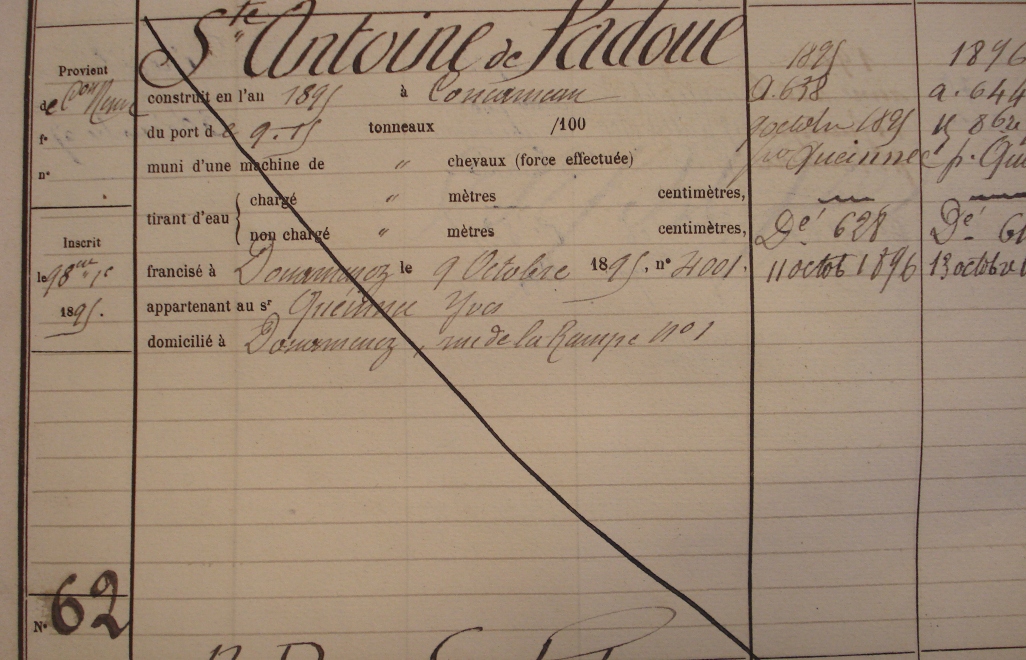 Ste Antoine de Padoue
Provient
de Con Neuve
f°
n°
Inscrit
le 9 8bre
1895.
construit en l'an 1895 à Concarneau
du port de 9.15 tonneaux /100
muni d'une machine de " chevaux (force effectuée)
tirant d'eau { chargé " mètres centimètres,
non chargé " mètres centimètres,
francisé à Douarnenez le 9 Octobre 1895, n° 4001.
appartenant au sr Queinnec Yves
domicilié à Douarnenez, rue de la Rampe n° 1
1895
a. 638
9 octobre 1895
po Queinnec
Dé 628
11 octob 1896
1896
a. 644
p. Qu
Dé
13 octobre
N° 62